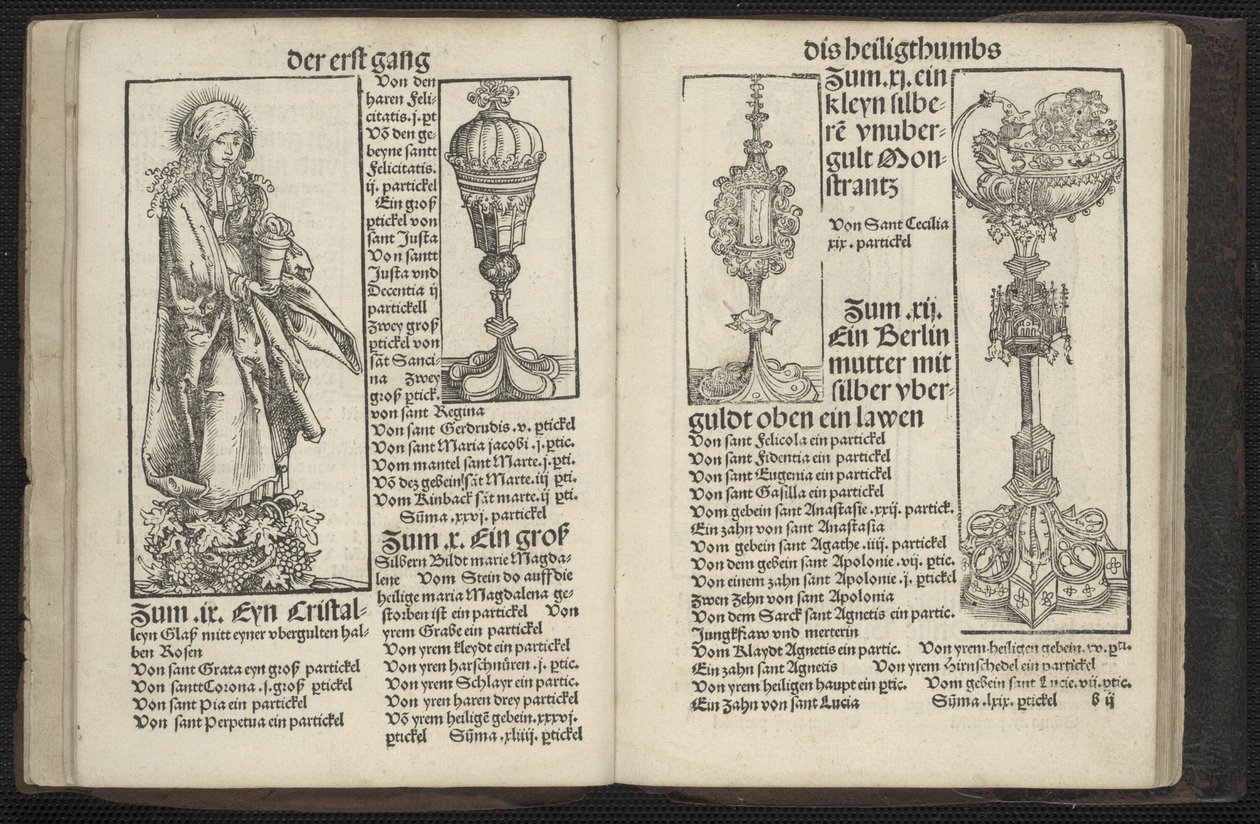 der erst gang
Zum .ix. Eyn Cristal-
leyn Glaß mitt eyner vbergulten hal-
ben Rosen
Von sant Grata eyn groß partickel
Von santt Corona .j. groß ꝑtickel
Von sant Pia ein partickel
Von sant Perpetua ein partickel
Von den
haren Feli-
citatis .j. ꝑt
Võ den ge-
beyne santt
Felicitatis.
ij. partickel
Ein groß
ꝑtickel von
sant Justa
Von santt
Justa vnd
Decentia ij
partickell
Zwey groß
ꝑtickel von
sãt Sanci-
na Zwey
groß ꝑtick.
von sant Regina
Von sant Gerdrudis .v. ꝑtickel
Von sant Maria jacobi .j. ꝑtic.
Vom mantel sant Marte .j. ꝑti.
Võ dez gebein sãt Marte .iij ꝑti.
Vom Kinback sãt marte .ij ꝑti.
Sũma .xxvj. partickel
Zum .x. Ein groß
Silbern Bildt marie Magda-
lene Vom Stein do auff die
heilige maria Magdalena ge-
storben ist ein partickel Von
yrem Grabe ein partickel
Von yrem kleydt ein partickel
Von yren harschnüren .j. ꝑtic.
Von yrem Schlayr ein partic.
Von yren haren drey partickel
Võ yrem heiligẽ gebein .xxxvj.
ꝑtickel Sũma .xliiij ꝑtickel
dis heiligthumbs
Zum .xj. ein
kleyn silbe-
rẽ vnuber-
gult Mon-
strantz
Von Sant Cecilia
xix. partickel
Zum .xij.
Ein Berlin
mutter mit
silber vber-
guldt oben ein lawen
Von sant Felicola ein partickel
Von sant Fidentia ein partickel
Von sant Eugenia ein partickel
Von sant Gasilla ein partickel
Vom gebein sant Anastasie .xxij. partick.
Ein zahn von sant Anastasia
Vom gebein sant Agathe .iiij. partickel
Von dem gebein sant Apolonie .vij. ꝑtic.
Von einem zahn sant Apolonie .ij. ꝑtickel
Zwen Zehn von sant Apolonia
Von dem Sarck sant Agnetis ein partic.
Jungkfraw vnd merterin
Vom Klaydt Agnetis ein partic. Von yrem heiligen gebein .xv. ꝑti.
Ein zahn sant Agnetis Von yrem Hirnschedel ein partickel
Von yrem heiligen haupt ein ꝑtic. Vom gebein sant Lucie .vij. ꝑtic.
Ein Zahn von sant Lucia Sũma .lxix. ꝑtickel b ij